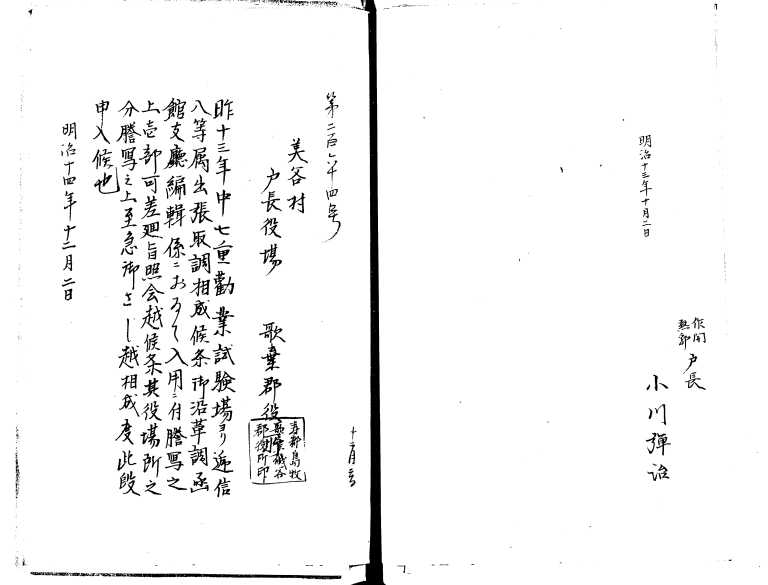 明治十三年十月二日
作開
熱郛
戸長
小川弾治
十二月三日
第二百六十四号
美谷村
戸長役場
歌棄郡役
寿都島牧
歌棄磯谷
郡役所印
昨十三年中七重勧業試験場ヨリ逓信
八等属出張取調相成候条御沿革調函
館支廳編輯係ニおゐて入用ニ付謄写之
上壱部可差廻旨照会越候条其役場所之
分謄写之上至急御さし越相成度此段
申入候也
明治十四年十二月二日